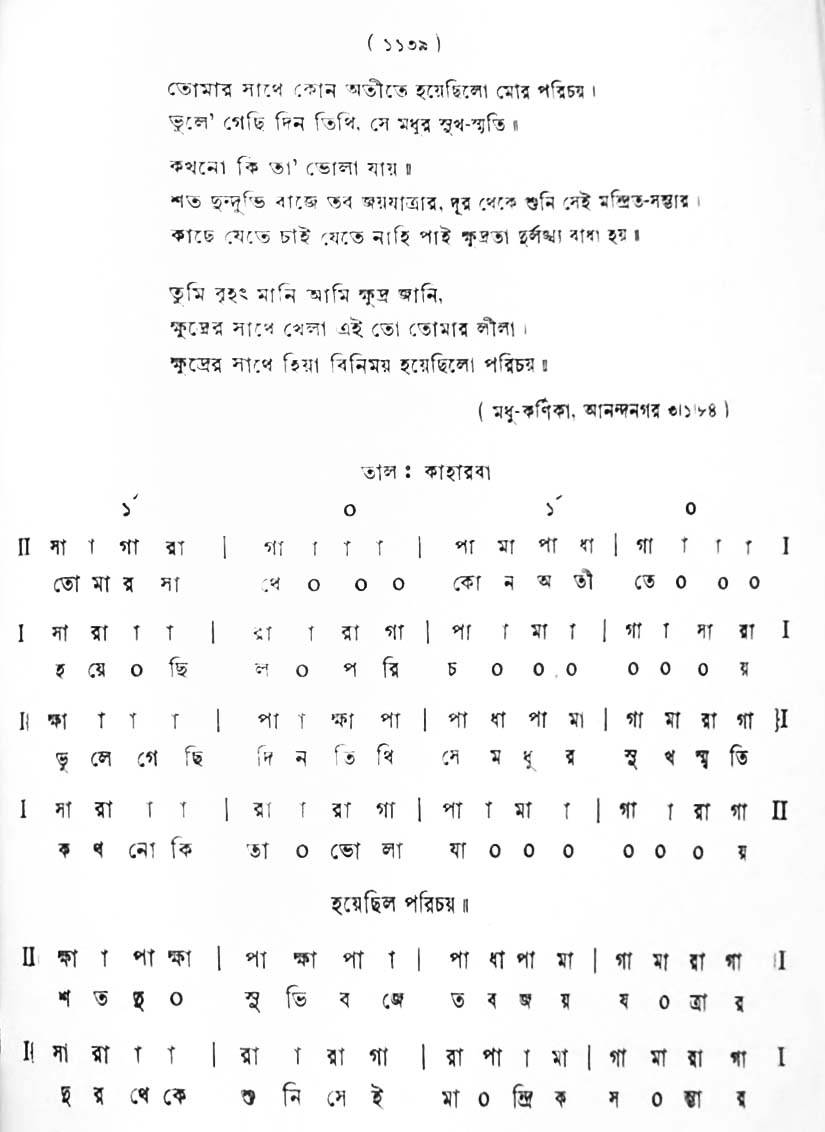 ( ১১৩৯ )
তোমার সাথে কোন অতীতে হয়েছিলো মোর পরিচয় ।
ভুলে' গেছি দিন তিথি, সে মধুর সুখ-স্মৃতি ॥
কখনো কি তা' ভোলা যায় ॥
শত দুন্দুভি বাজে তব জয়যাত্রার, দূর থেকে শুনি সেই মন্দ্রিত-সম্ভার ।
কাছে যেতে চাই যেতে নাহি পাই ক্ষুদ্রতা দুর্লঙ্ঘ্য বাধা হয় ॥
তুমি বৃহৎ মানি আমি ক্ষুদ্র জানি,
ক্ষুদ্রের সাথে খেলা এই তো তোমার লীলা ।
ক্ষুদ্রের সাথে হিয়া বিনিময় হয়েছিলো পরিচয় ॥
( মধু-কর্ণিকা, আনন্দনগর ৩।১।৮৪ )
তাল : কাহারবা
১´ ০ ১´ ০
II সা া গা রা | গা া া া | পা মা পা ধা | গা া া া I
তো মা র সা থে ০ ০ ০ কো ন অ তী তে ০ ০ ০
I সা রা া া | রা া রা গা | পা া মা া | গা া সা রা I
হ য়ে ০ ছি ল ০ প রি চ ০ ০ ০ ০ ০ ০ য়
I{ ক্ষা া া া | পা া ক্ষা পা | পা ধা পা মা | গা মা রা গা }I
ভু লে গে ছি দি ন তি থি সে ম ধু র সু খ স্মৃ তি
I সা রা া া | রা া রা গা | পা া মা া | গা া রা গা II
ক খ নো কি তা ০ ভো লা যা ০ ০ ০ ০ ০ ০ য়
হয়েছিল পরিচয় ॥
II ক্ষা া পা ক্ষা | পা ক্ষা পা া | পা ধা পা মা | গা মা রা গা I
শ ত দু ০ ন্দু ভি ব জে ত ব জ য় য ০ ত্রা র
I{ সা রা া া | রা া রা গা | রা পা া মা | গা মা রা গা I
দু র থে কে শু নি সে ই মা ০ ন্দ্রি ক স ০ ম্ভা র